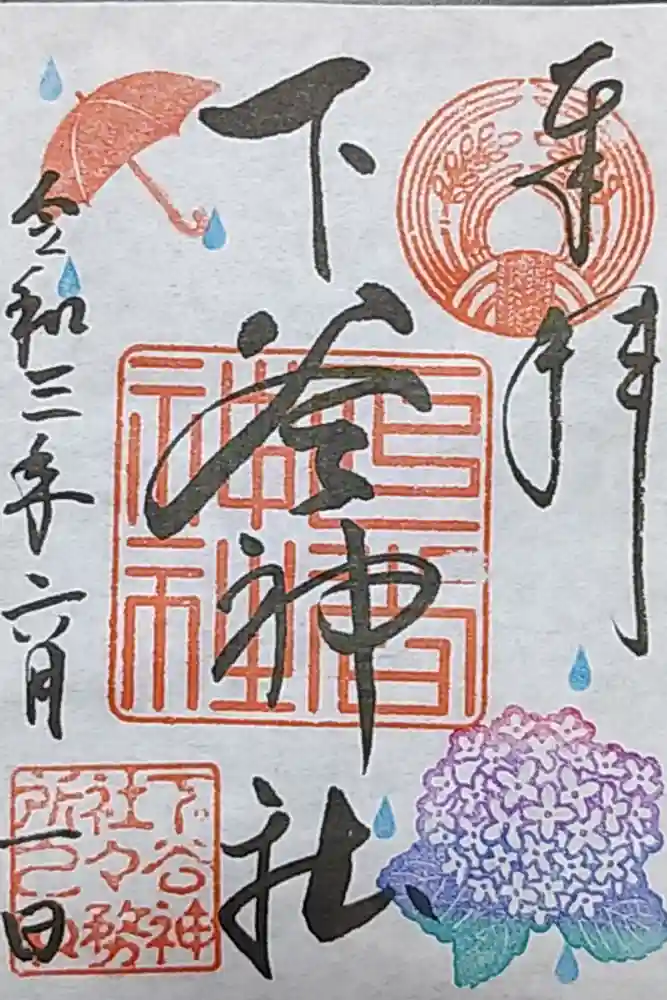 奉拝
下谷神社
令和三年六月
一日
下谷神
社々務
所之印